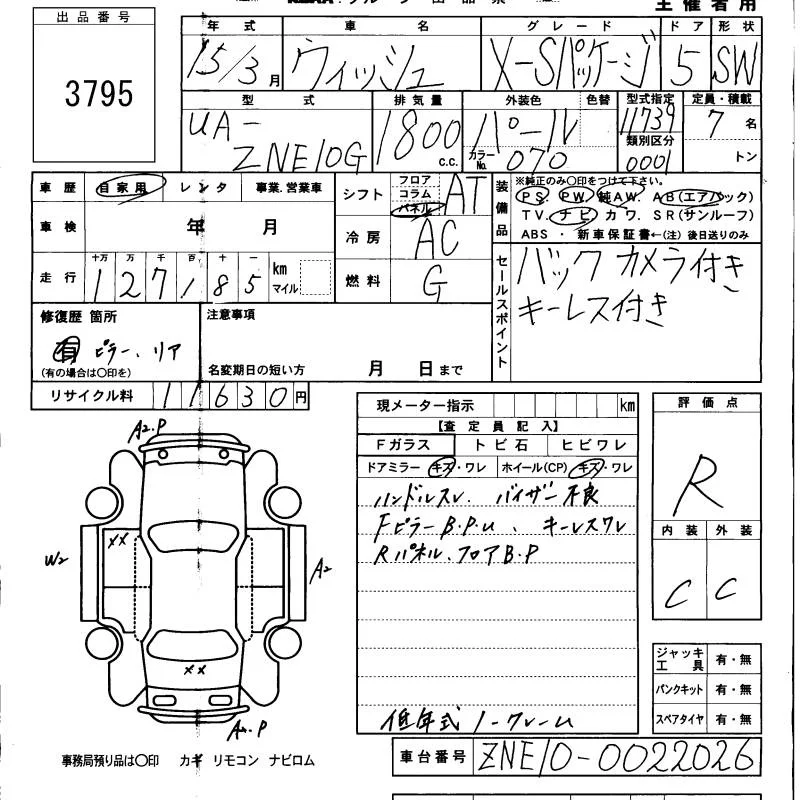 主催者用
出品番号
3795
年式 車名 グレード ドア 形状
15/3月 ウィッシュ X-Sパッケージ 5 SW
型式 排気量 外装色 色替 型式指定 定員・積載
UA- 1800 パール 11739 7名
類別区分
ZNE10G c.c. カラーNo. 070 0001 トン
車歴 自家用 レンタ 事業.営業車
車検 年 月
走行 十万 万 千 百 十 一
127185 km マイル
シフト フロア コラム パネル AT
冷房 AC
燃料 G
装備品 ※純正のみ〇印をつけて下さい。
PS. PW. 純AW. AB(エアバック)
TV. ナビ カワ. SR(サンルーフ)
ABS ・ 新車保証書←(注) 後日送りのみ
セールスポイント
バックカメラ付き
キーレス付き
修復歴 箇所
有 ピラー、リア
(有の場合は〇印を)
注意事項
名変期日の短い方 月 日まで
リサイクル料 11630円
現メーター指示 km
【査定員記入】
Fガラス トビ石 ヒビワレ
ドアミラー キズ・ワレ ホイール(CP) キズ・ワレ
ハンドルスレ バイザー不良
Fピラー B.P.u 、 キーレスワレ
Rパネル.フロア B.P
低年式 ノークレーム
評価点
R
内装 外装
C C
ジャッキ工具 有・無
パンクキット 有・無
スペアタイヤ 有・無
A2.P
××
W2
A2
××
事務局預り品は〇印 カギ リモコン ナビロム
車台番号 ZNE10-0022026